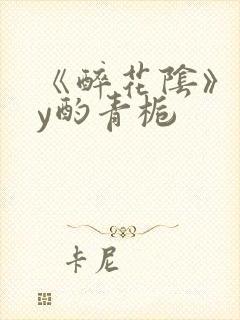 《醉花陰》
y酌青栀
卡尼